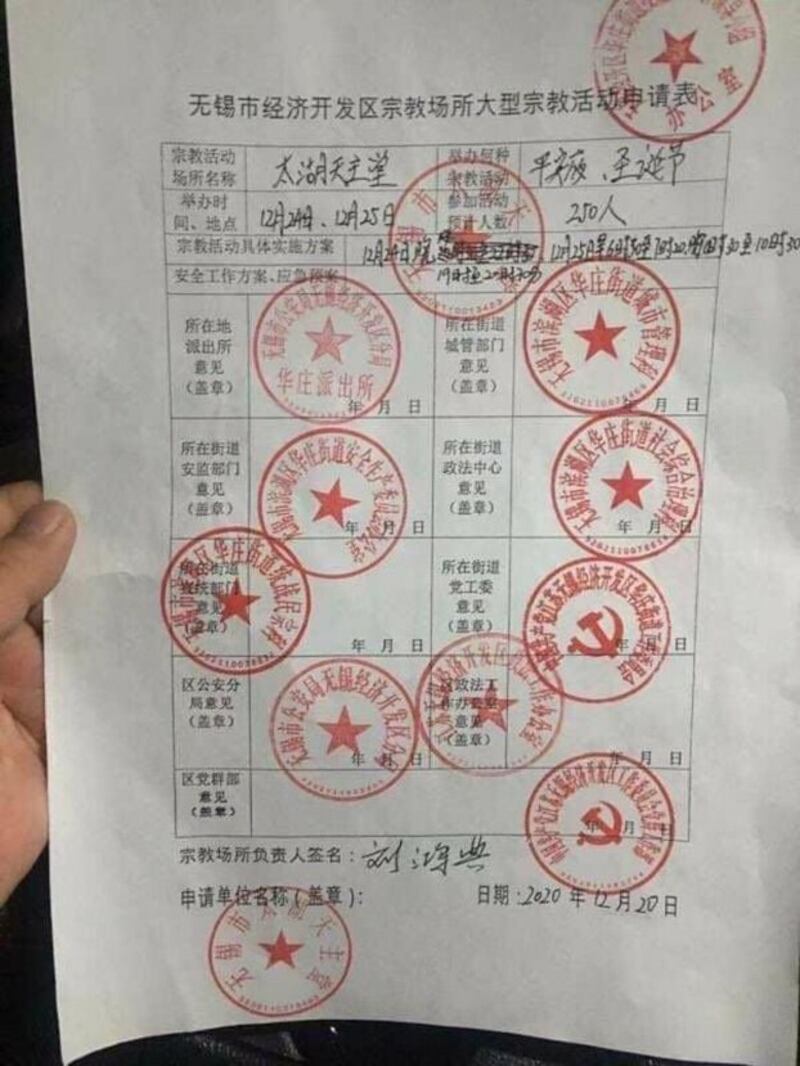 办公室
无锡市经济开发区宗教场所大型宗教活动申请表
宗教活动场所名称 太湖天主堂 举办何种宗教活动 平安夜、圣诞节
举办时间、地点 12月24日、12月25日 参加活动预计人数 250人
宗教活动具体实施方案 12月24日晚 19时至20时30分 12月25日早6时30至7时20
安全工作方案、应急预案
所在地派出所意见(盖章) 年 月 日 所在街道城管部门意见(盖章) 年 月 日
无锡市公安局无锡经济开发区分局
华庄派出所
无锡市滨湖区华庄街道城市管理科
所在街道安监部门意见(盖章) 年 月 日 所在街道政法中心意见(盖章) 年 月 日
无锡市滨湖区华庄街道安全生产委员会办公室
无锡市滨湖区华庄街道社会综合治理
所在街道宣统部门意见(盖章) 年 月 日 所在街道党工委意见(盖章) 年 月 日
区华庄街道统战民宗
中国共产党江苏无锡经济开发区华庄街道工作委员会
区公安分局意见(盖章) 年 月 日 区政法工作办公室意见(盖章) 年 月 日
无锡市公安局无锡经济开发区分局
区党群部意见(盖章) 年 月 日
中国共产党江苏无锡经济开发区工作委员会党群工作部
宗教场所负责人签名:刘鸿典
申请单位名称(盖章): 日期:2020年12月20日
无锡市太湖天主堂